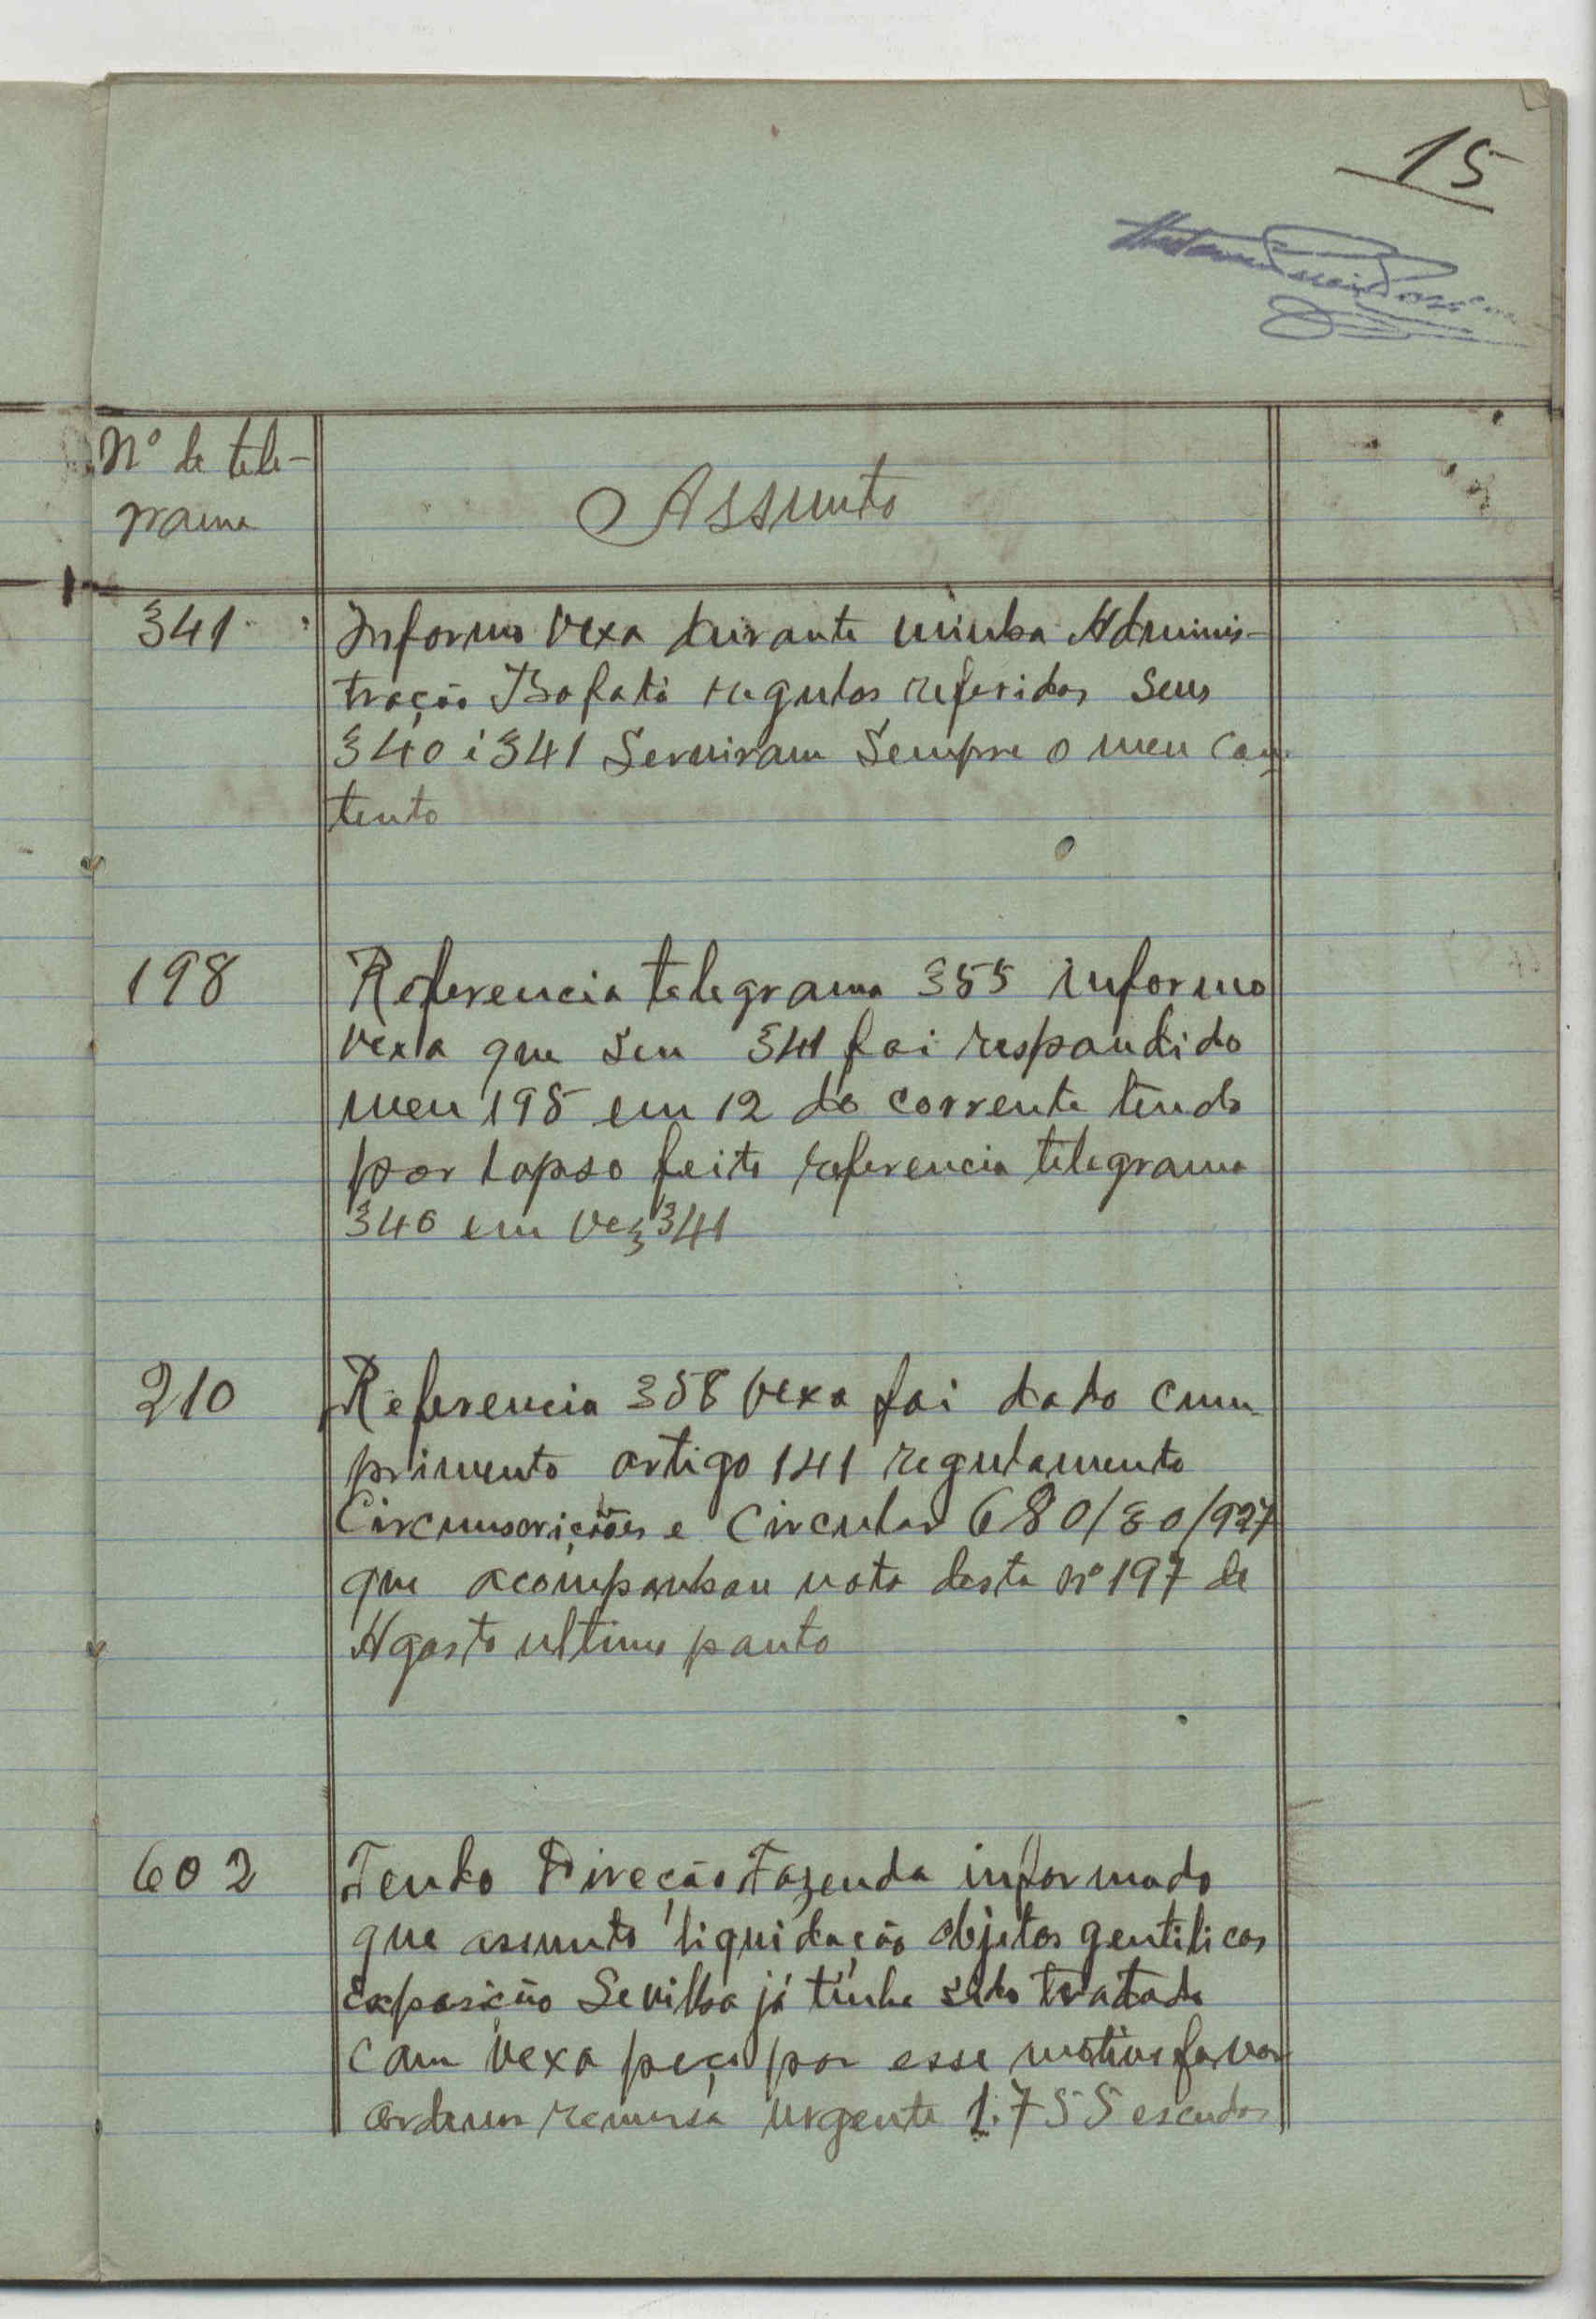 15
Nº de tele-
grama
Assunto
341
Informo Vexa durante minha Adminis-
tração Bafatá regulos referidos seus
340 e 341 Serviram Sempre o meu con-
tento
198
Referencia telegrama 355 informo
Vexa que seu 341 foi respondido
meu 195 em 12 do corrente tendo
por lapso feito referencia telegrama
340 em vez 341
210
Referencia 358 Vexa foi dado cum-
primento artigo 141 regulamento
Circunscrições e Circular 680/30/927
que acompanhou nota desta nº 197 de
Agosto ultimo ponto
602
Tendo Direcção Fazenda informado
que assunto liquidação objetos gentilicos
Exposição Sevilha já tinha sido tratado
com Vexa peço por esse motivo favor
ordenar remessa urgente 1.755 escudos